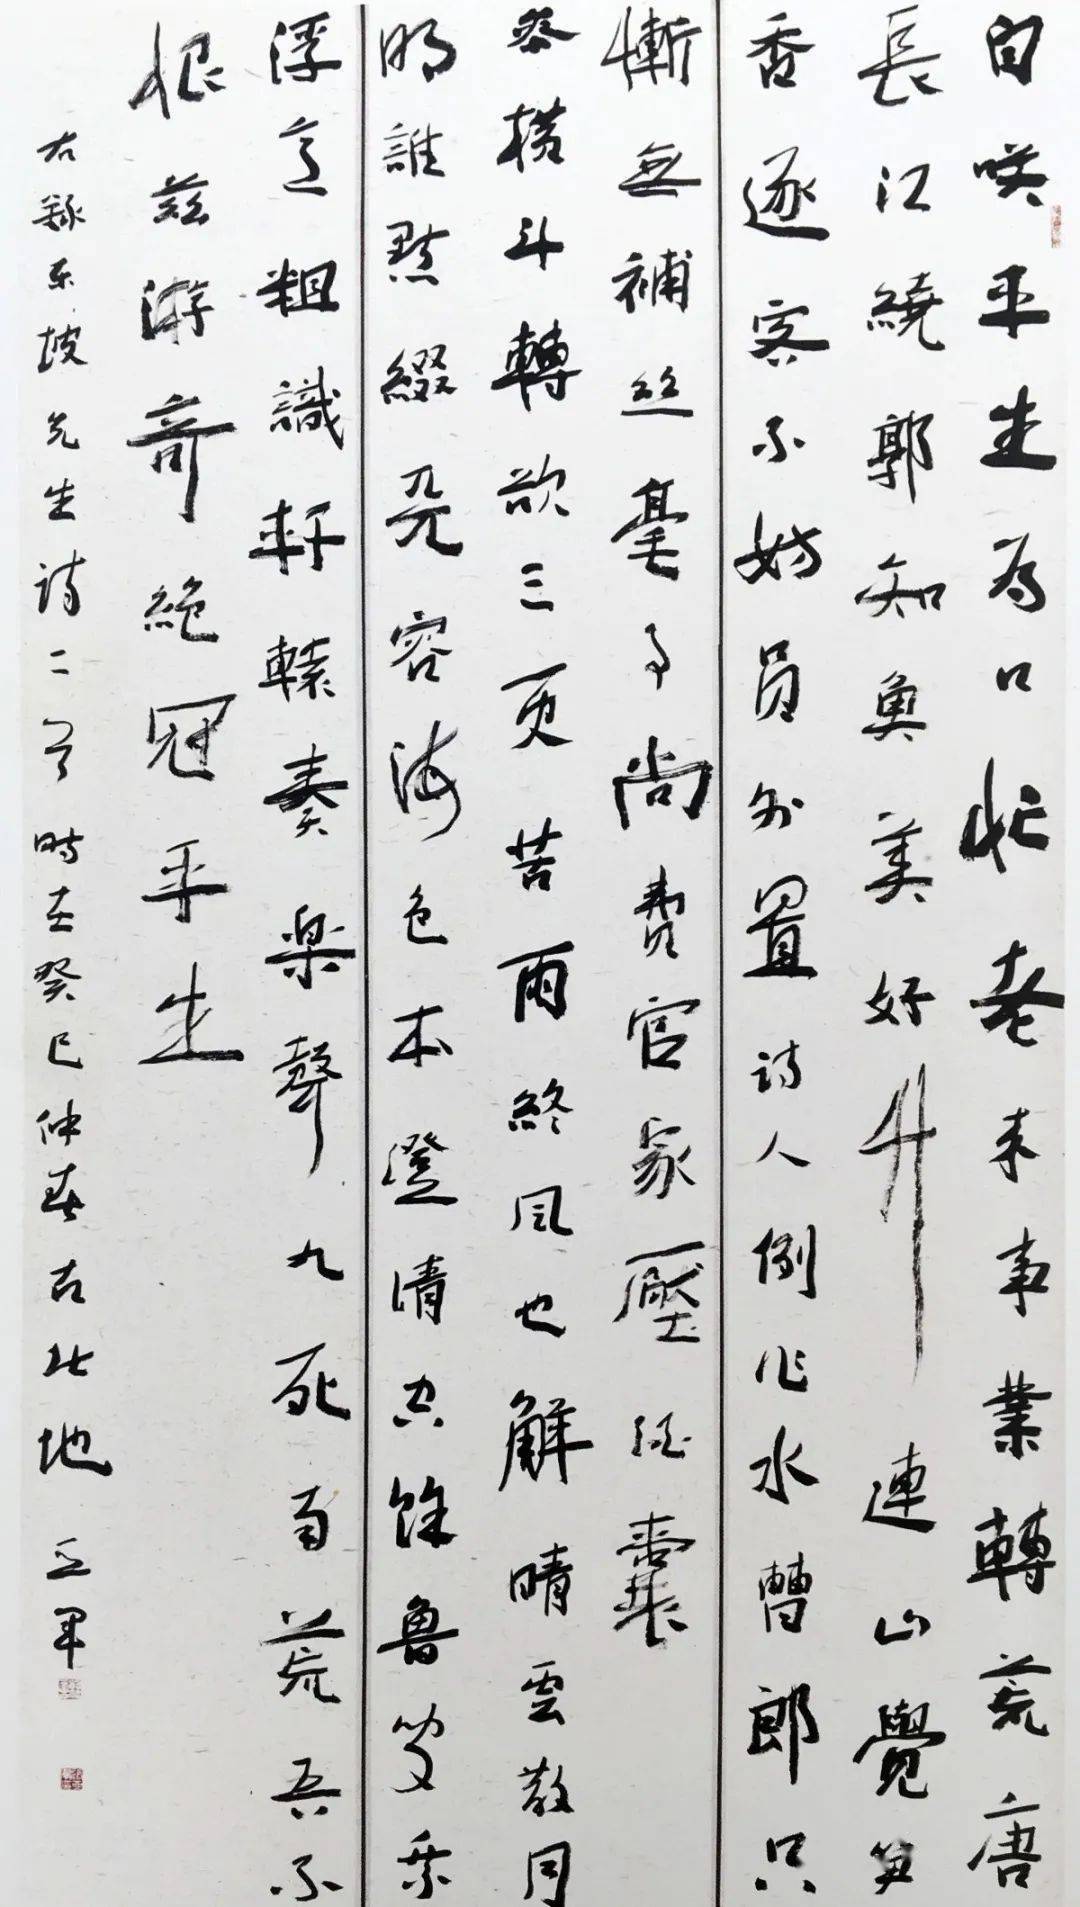 自咲平生為口忙老来事業轉荒唐
長江繞郭知魚美好竹連山覺笋
香逐客不妨員外置詩人例作水曹郎只
慚無補絲毫事尚費官家壓酒囊
参橫斗轉欲三更苦雨終風也解晴雲散月
明誰點綴天容海色本澄清空餘魯叟乘
浮意粗識軒轅奏樂聲九死南荒吾不
恨茲游奇絕冠平生
右録東坡先生詩二首時在癸巳仲春古北地